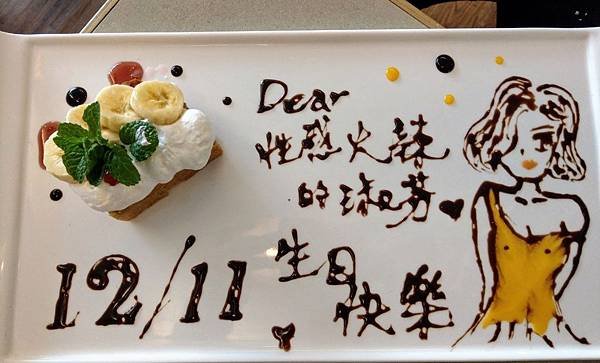 Dear
性感火辣
的淑芬
12/11
生日
快樂